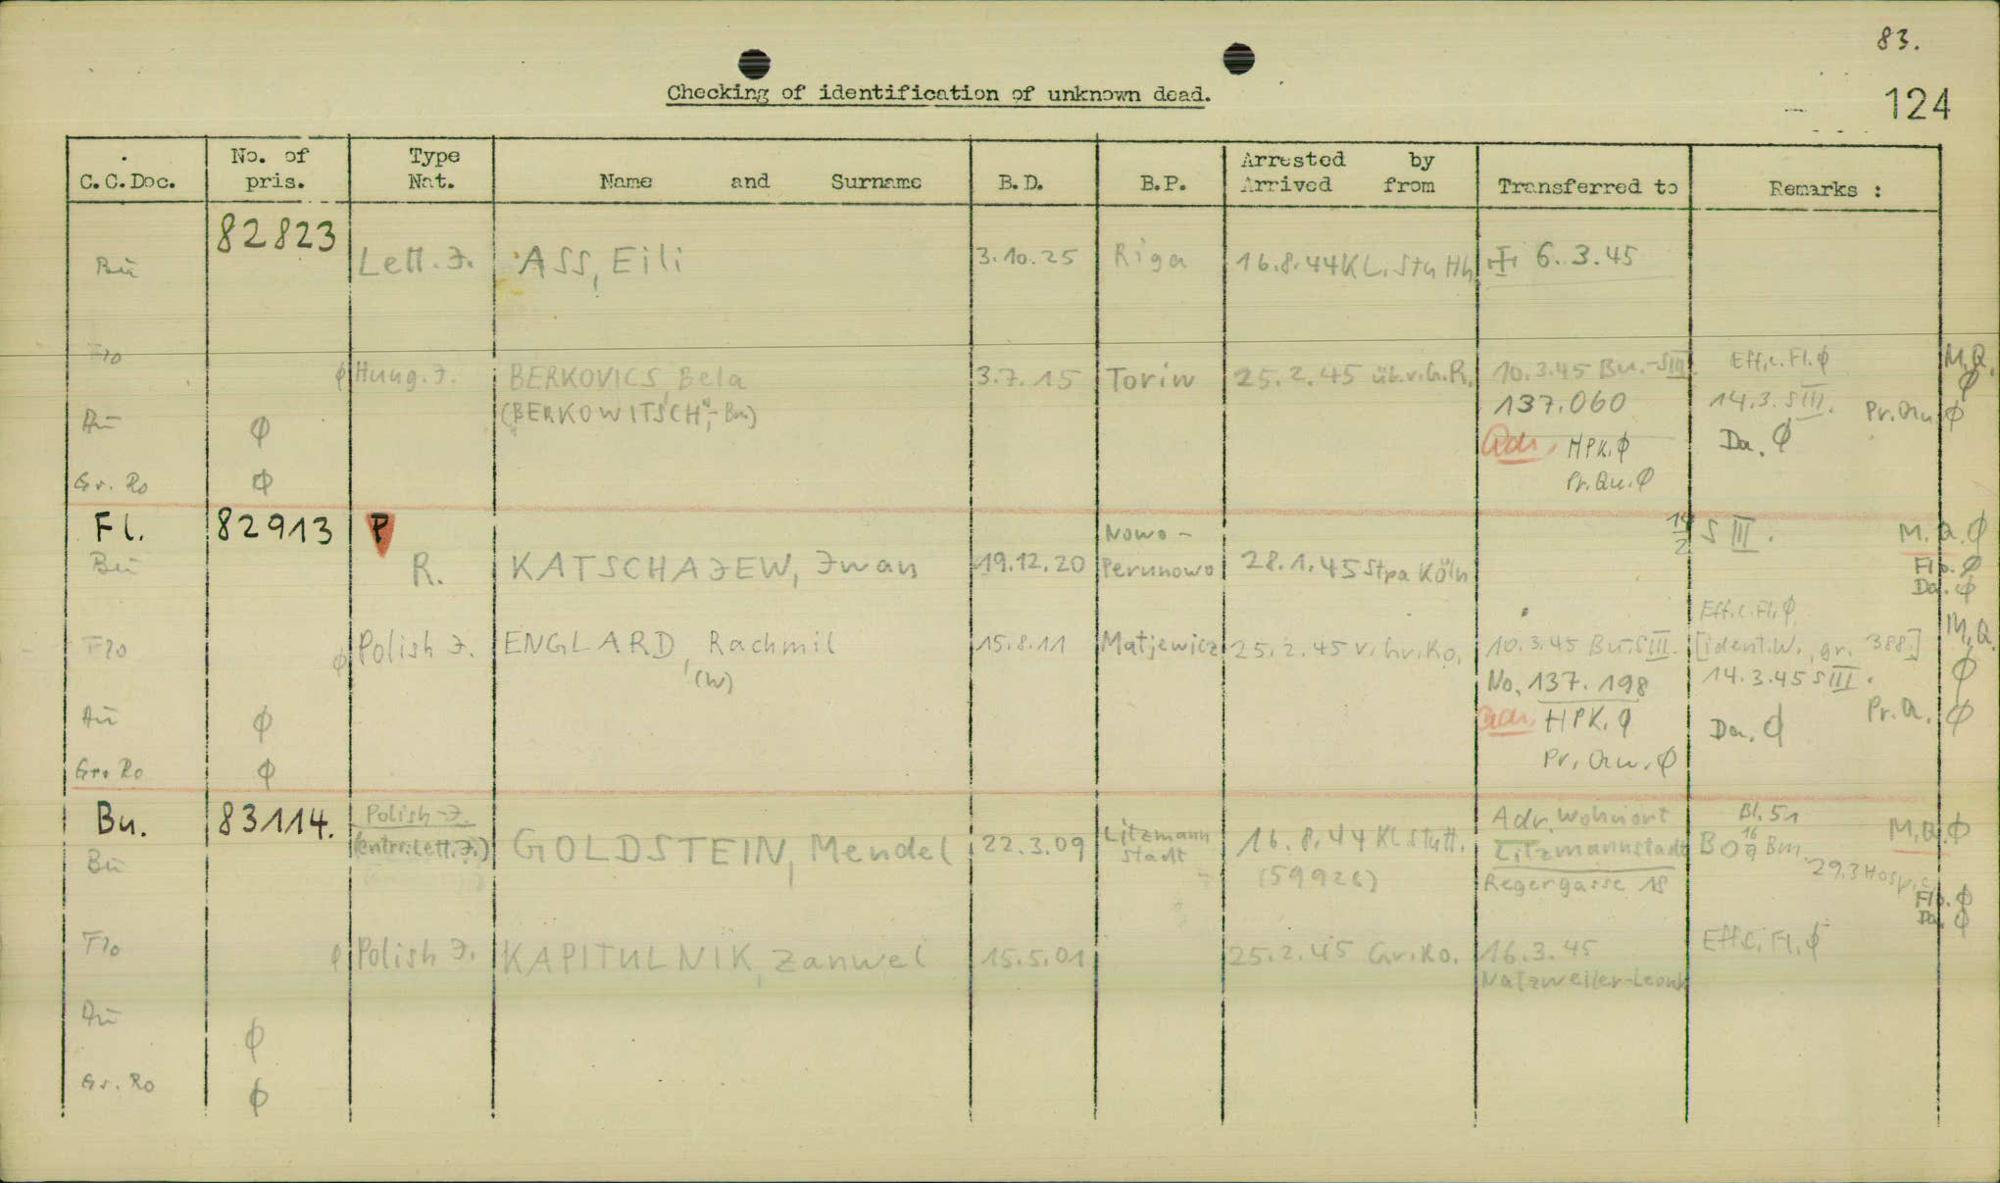 83.
124
Checking of identification of unknown dead.
C.C.Doc.
No. of pris.
Type Nat.
Name and Surname
B.D.
B.P.
Arrested by
Arrived from
Transferred to
Remarks :
82823
Bü Lett. J. ASS, Eili 3.10.25 Riga 16.8.44 KL. Stu Hh ╬ 6.3.45
Flo ϕ Hung. J. BERKOVICS, Bela 3.7.15 Torin 25.2.45 üb.v.G.R. 10.3.45 Bu.-SIII Eff.c.Fl.ϕ M.Q. ϕ
(BERKOWITSCH"-Bu) 137.060 14.3. SIII. Pr.Qu. ϕ
Au ϕ HPK.ϕ Da. ϕ
Gr. Ro ϕ Pr.Qu.ϕ
Fl. 82913 P Nowo- 14/2 S III. M.Q.ϕ
Bü R. KATSCHAJEW, Jwan 19.12.20 Perunowo 28.1.45 Stpa Köln Flo. ϕ
Da. ϕ
Eff.c.Fl.ϕ
Flo ϕ Polish J. ENGLARD, Rachmil 15.8.11 Matjewicz 25.2.45 v.Gr.Ro. 10.3.45 Bu.SIII. [ident.W., gr. 388.] M.Q. ϕ
(W) No. 137.198 14.3.45 SIII.
Au ϕ HPK. ϕ Da. ϕ Pr.Q. ϕ
Gr. Ro ϕ Pr. Qu. ϕ
Bu. 83114. Polish-J. Litzmann Adr. Wohnort Bl. 51 M.Q.ϕ
Bü (entr.:Lett.J.) GOLDSTEIN, Mendel 22.3.09 stadt 16.8.44 KL Stutt. Litzmannstadt BO 16/9 Bm.
(59926) Regergasse 18 29.3 Hosp.
Flo. ϕ
Da. ϕ
Flo ϕ Polish J. KAPITULNIK, Zanwel 15.5.01 25.2.45 Gr.Ro. 16.3.45 Eff.c.Fl.ϕ
Natzweiler-Leonb
Au ϕ
Gr. Ro ϕ